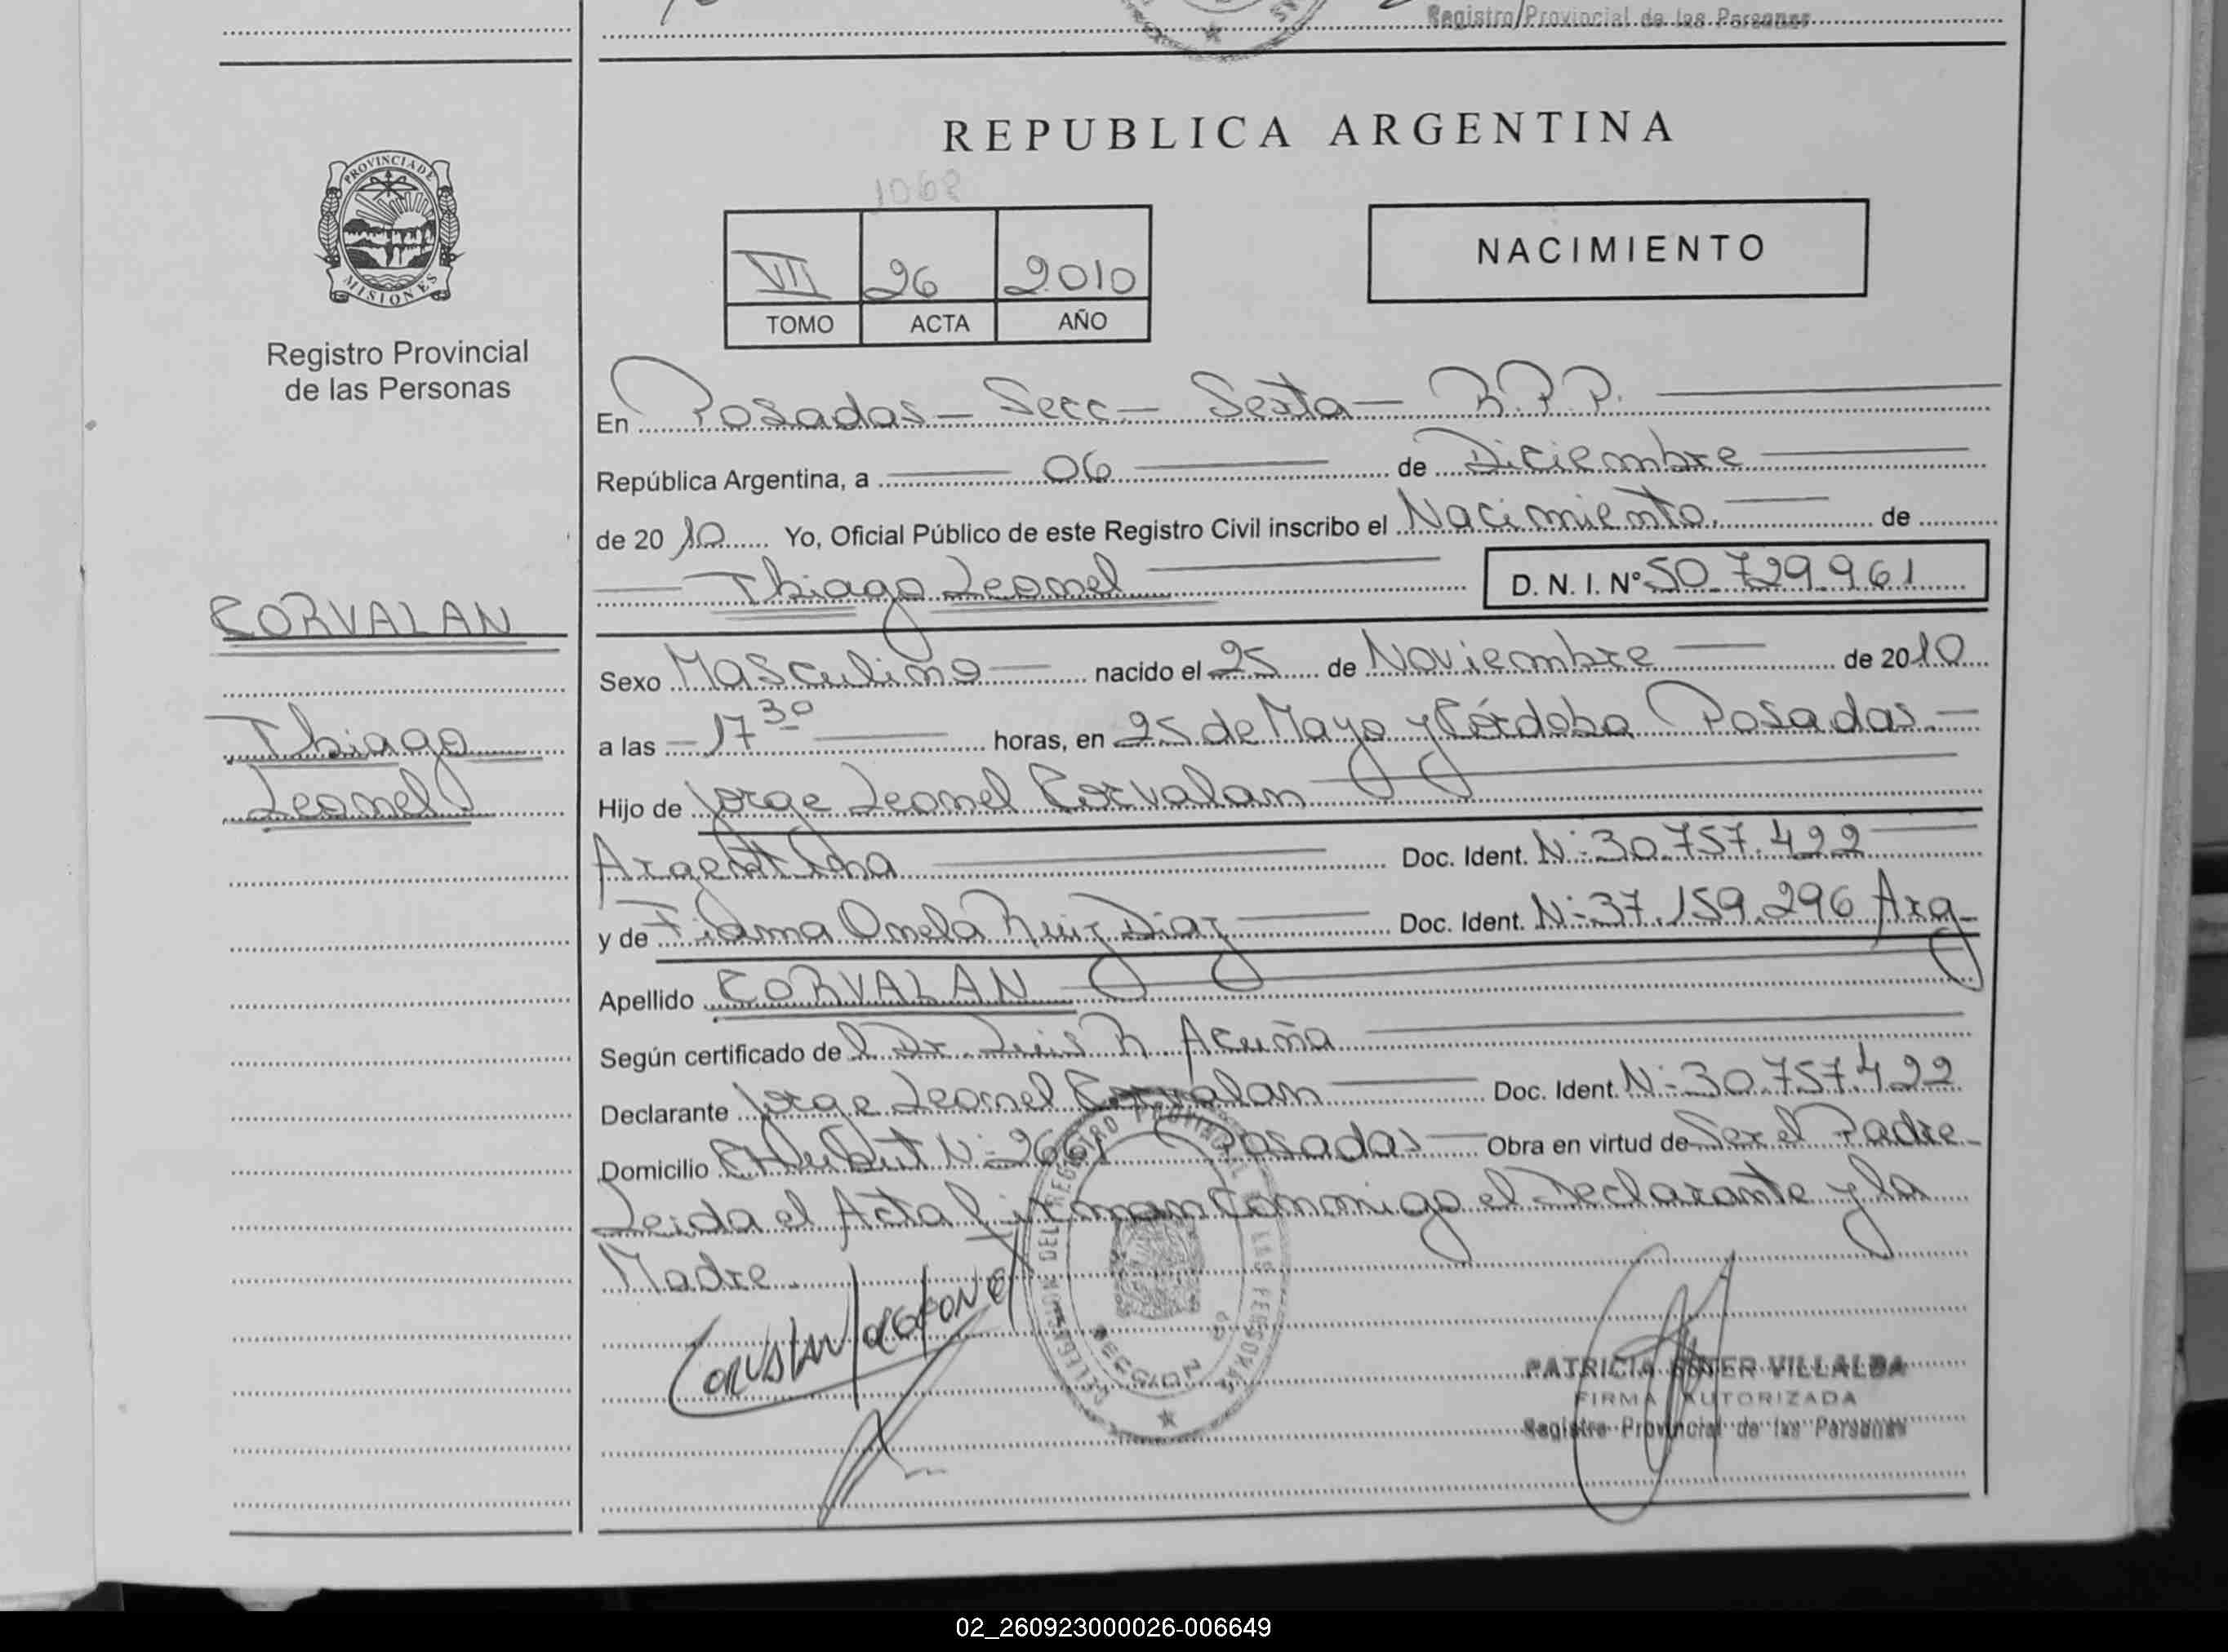 Registro Provincial de las Personas
REPUBLICA ARGENTINA
1068
PROVINCIA DE
MISIONES
Registro Provincial
de las Personas
VII 26 2010
TOMO ACTA AÑO
NACIMIENTO
En Posadas - Secc - Sexta - R.P.P.
República Argentina, a 06 de Diciembre
de 2010 Yo, Oficial Público de este Registro Civil inscribo el Nacimiento. de
Thiago Leonel D. N. I. Nº 50.729.961
CORVALAN
Thiago
Leonel
Sexo Masculino nacido el 25 de Noviembre de 2010
a las 17 30 horas, en 25 de Mayo y Córdoba Posadas.
Hijo de Jorge Leonel Corvalan
Argentina Doc. Ident. Nº 30.757.422
y de Fiama Ruiz Diaz Doc. Ident. Nº 37.159.296 Arg
Apellido CORVALAN
Según certificado del Dr. Luis R. Acuña
Declarante Jorge Leonel Corvalan Doc. Ident. Nº 30.757.422
Domicilio Chubut Nº 2661 Posadas Obra en virtud de Ser el Padre
Leida el Acta firman Conmigo el Declarante y la
Madre.
DEL REGISTRO PROVINCIAL DE LAS PERSONAS
SECCION 6ª
PATRICIA VILLALBA
FIRMA AUTORIZADA
Registro Provincial de las Personas
02_260923000026-006649